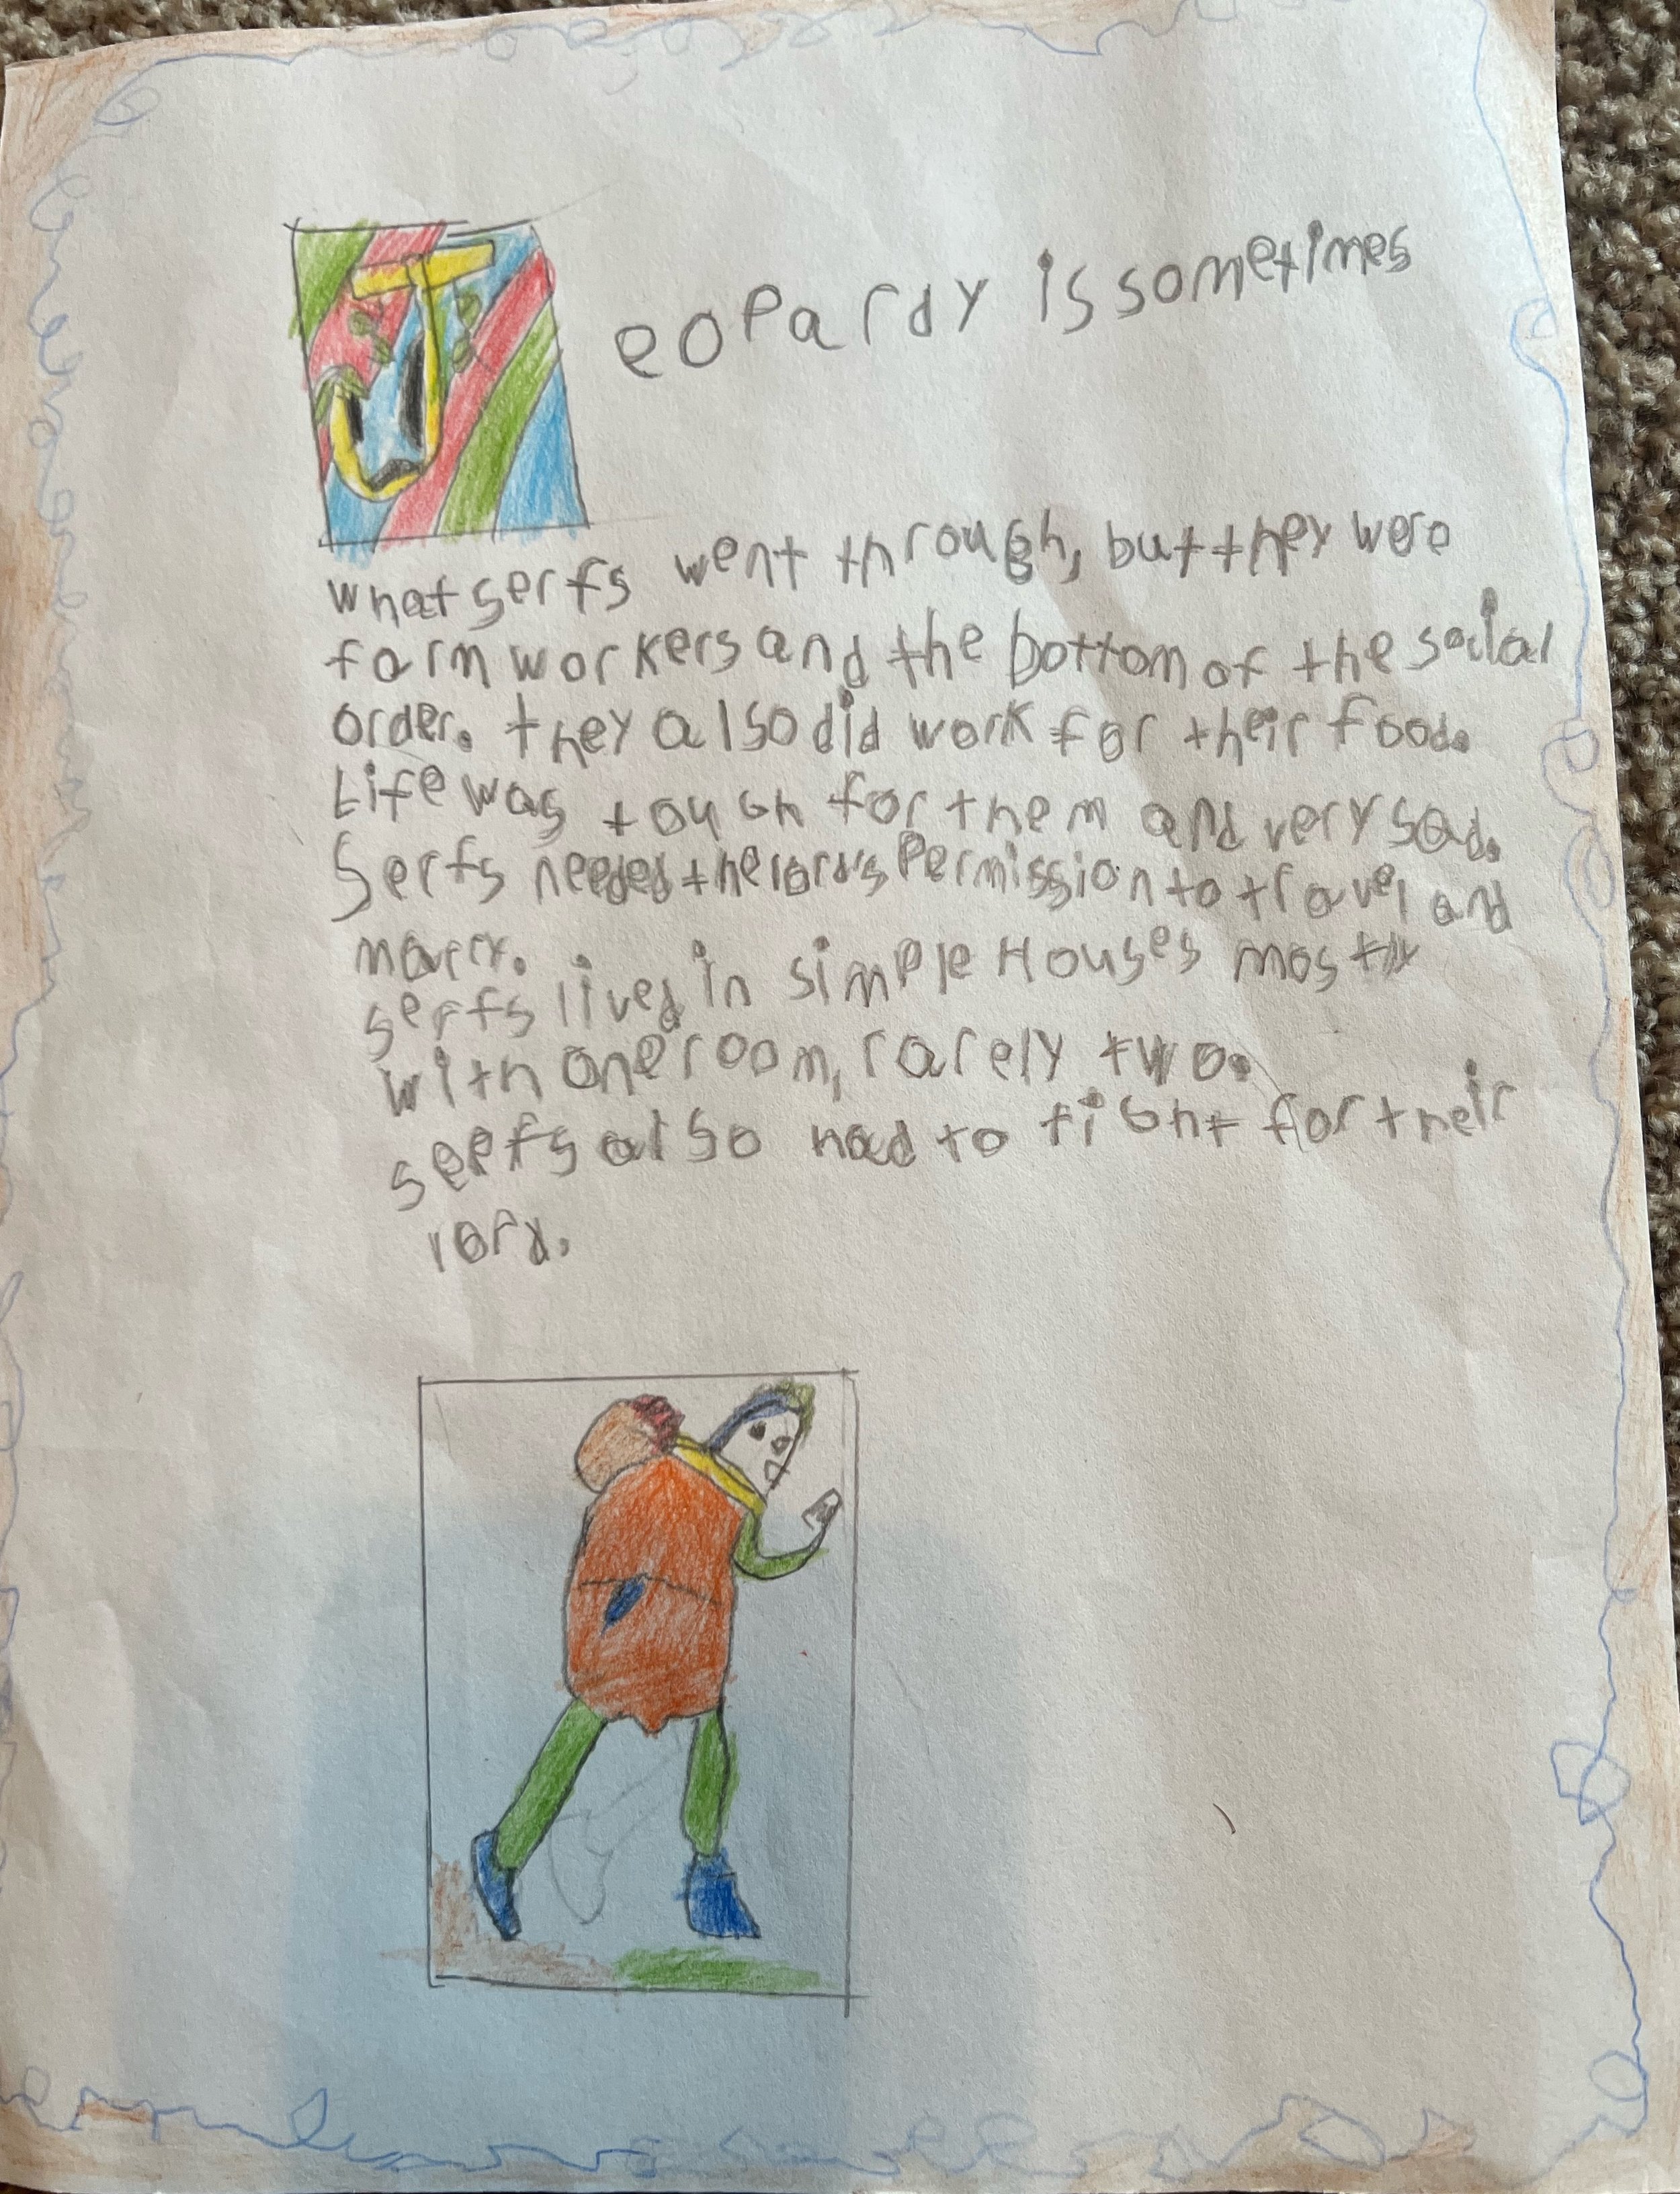 Jeopardy is sometimes
what serfs went through, but they were
farm workers and the bottom of the social
order. they also did work for their food.
Life was tough for them and very sad.
Serfs needed the lord's Permission to travel and
marry.
serfs lived in simple Houses mostly
with one room, rarely two.
serfs also had to fight for their
lord.